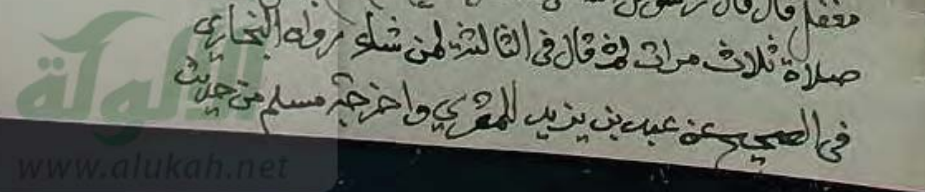 مغفل قال قال رسول
صلاة ثلاث مرات ثم قال في الثالثة لمن شاء رواه البخاري
في الصحيح عن عبد بن يزيد المقري واخرجه مسلم من حديث
الألوكة
www.alukah.net